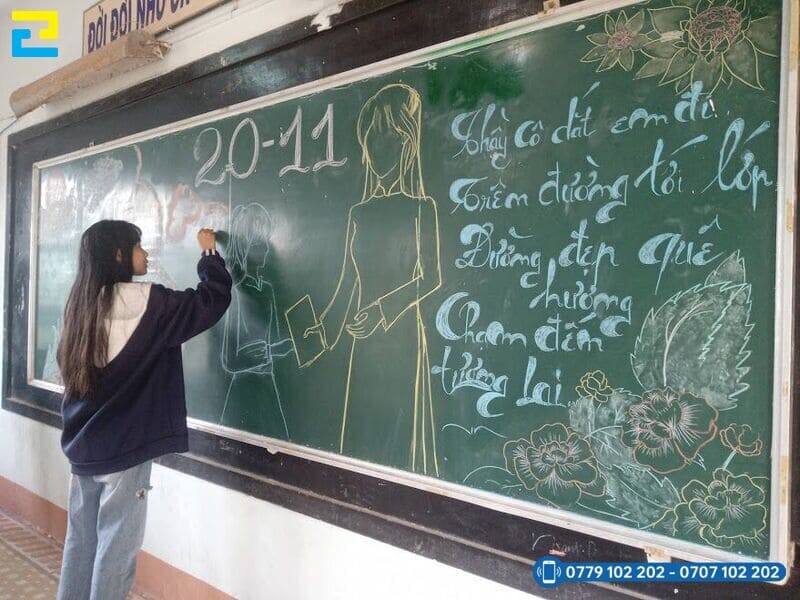 ĐỜI ĐỜI NHỚ
20-11
Thầy cô dắt em đi
Trên đường tới lớp
Đường đẹp quê
hương
Chạm đến
tương lai
0779 102 202 - 0707 102 202